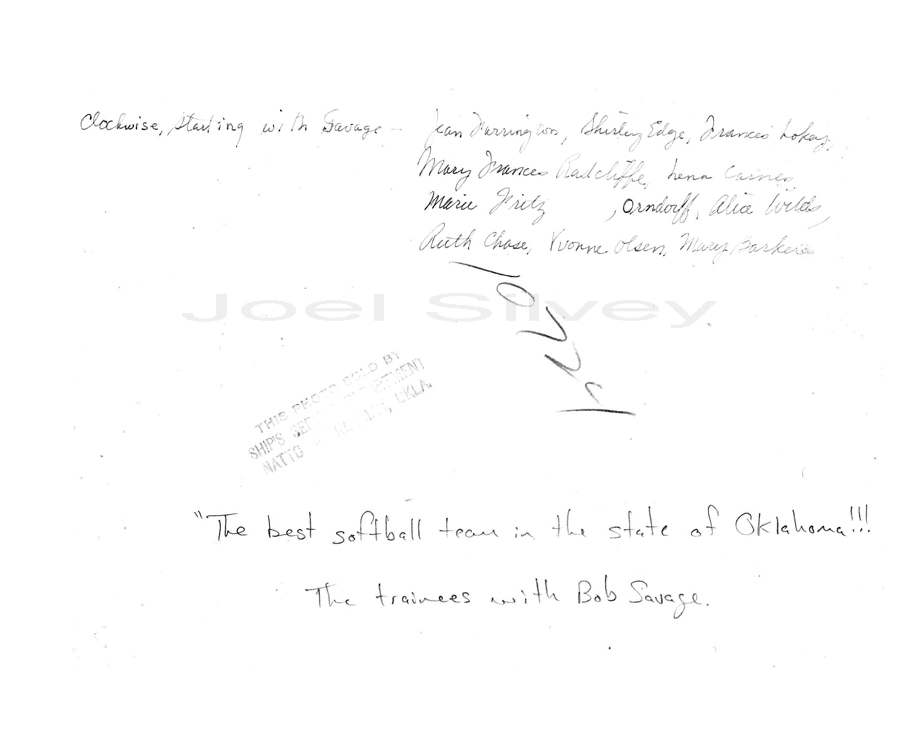 Clockwise, starting with Savage — Jean Farrington, Shirley Edge, Frances Lokey,
Mary Frances Radcliffe, Lena Carnes,
Marie Fritz , Orndorff, Alice Wilds,
Ruth Chase, Yvonne Olsen, Mary Barker
Joel Silvey
THIS PHOTO SOLD BY
SHIP'S
NATTC OKLA.
"The best softball team in the state of Oklahoma!!!
The trainees with Bob Savage.